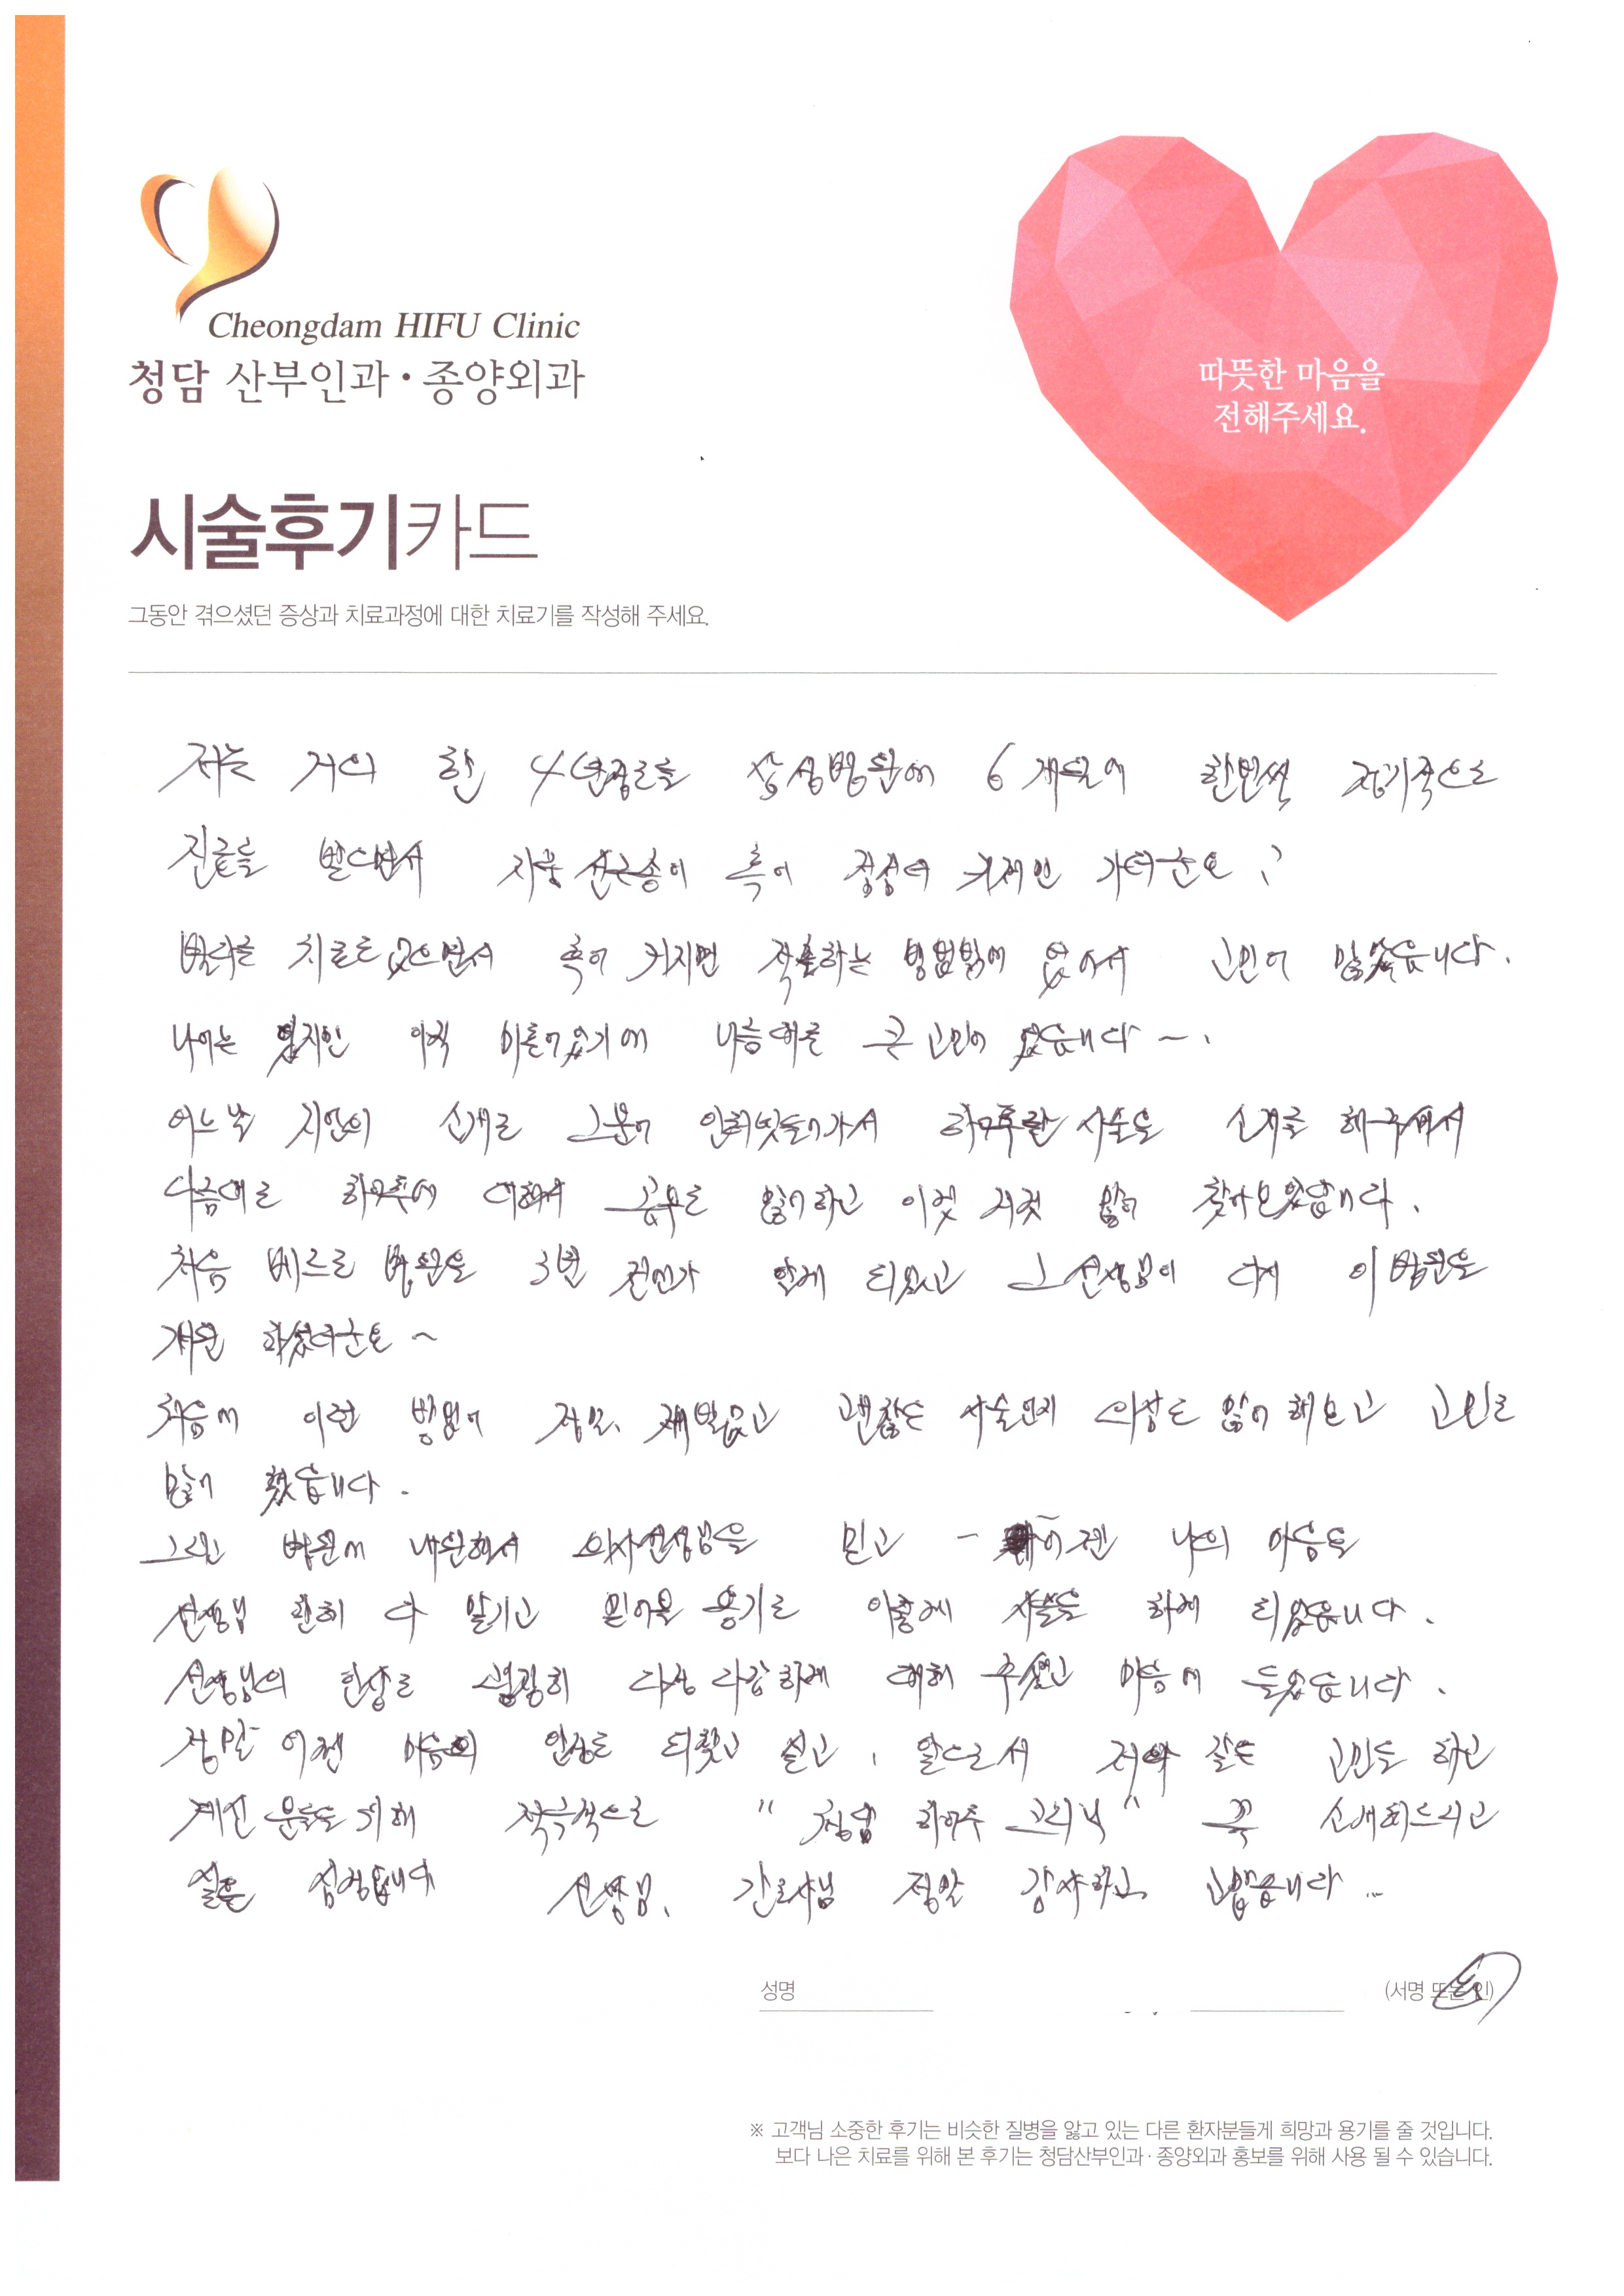 Cheongdam HIFU Clinic
청담 산부인과·종양외과
따뜻한 마음을
전해주세요.
시술후기카드
그동안 겪으셨던 증상과 치료과정에 대한 치료기를 작성해 주세요.
저는 거의 한 4년정도를 삼성병원에 6개월에 한번씩 정기적으로
진료를 받으면서 자궁선근종이 혹이 점점더 커져만 가더군요?
별다른 치료도 없으면서 혹이 커지면 적출하는 방법밖에 없어서 고민이 많았습니다.
나이는 아직 나름대로 큰 고민이 많습니다~.
어느날 지인의 소개로 그분이 인터넷들어가서 하이푸란 시술을 소개를 해주셔서
나름대로 하이푸에 대해서 공부도 많이하고 이것 저것 많이 찾아보았답니다.
처음 병원을 3번 전인가 알게 되었고 그 선생님이 다시 이 병원을
개원 하셨더군요~
처음에 이런 방법이 정말 괜찮은 시술인지 의심도 많이 해보고 고민도
많이 했습니다.
그리고 병원에 내원해서 의사선생님을 믿고 - 이젠 나의 마음을
선생님 한테 다 맡기고 용기로 이렇게 시술을 하게 되었습니다.
선생님의 인상도 굉장히 다정다감하게 대해 주셨고 마음에 들었습니다.
정말 이젠 마음의 안정도 되찾고 싶고, 앞으로서 저와 같은 고민도 하고
계신 분들을 위해 적극적으로 "청담 하이푸 크리닉" 꼭 소개해드리고
싶은 심정입니다 선생님, 간호사님 정말 감사하고, 고맙습니다...
성명
(서명 또는 인)
※ 고객님 소중한 후기는 비슷한 질병을 앓고 있는 다른 환자분들게 희망과 용기를 줄 것입니다.
보다 나은 치료를 위해 본 후기는 청담산부인과·종양외과 홍보를 위해 사용 될 수 있습니다.